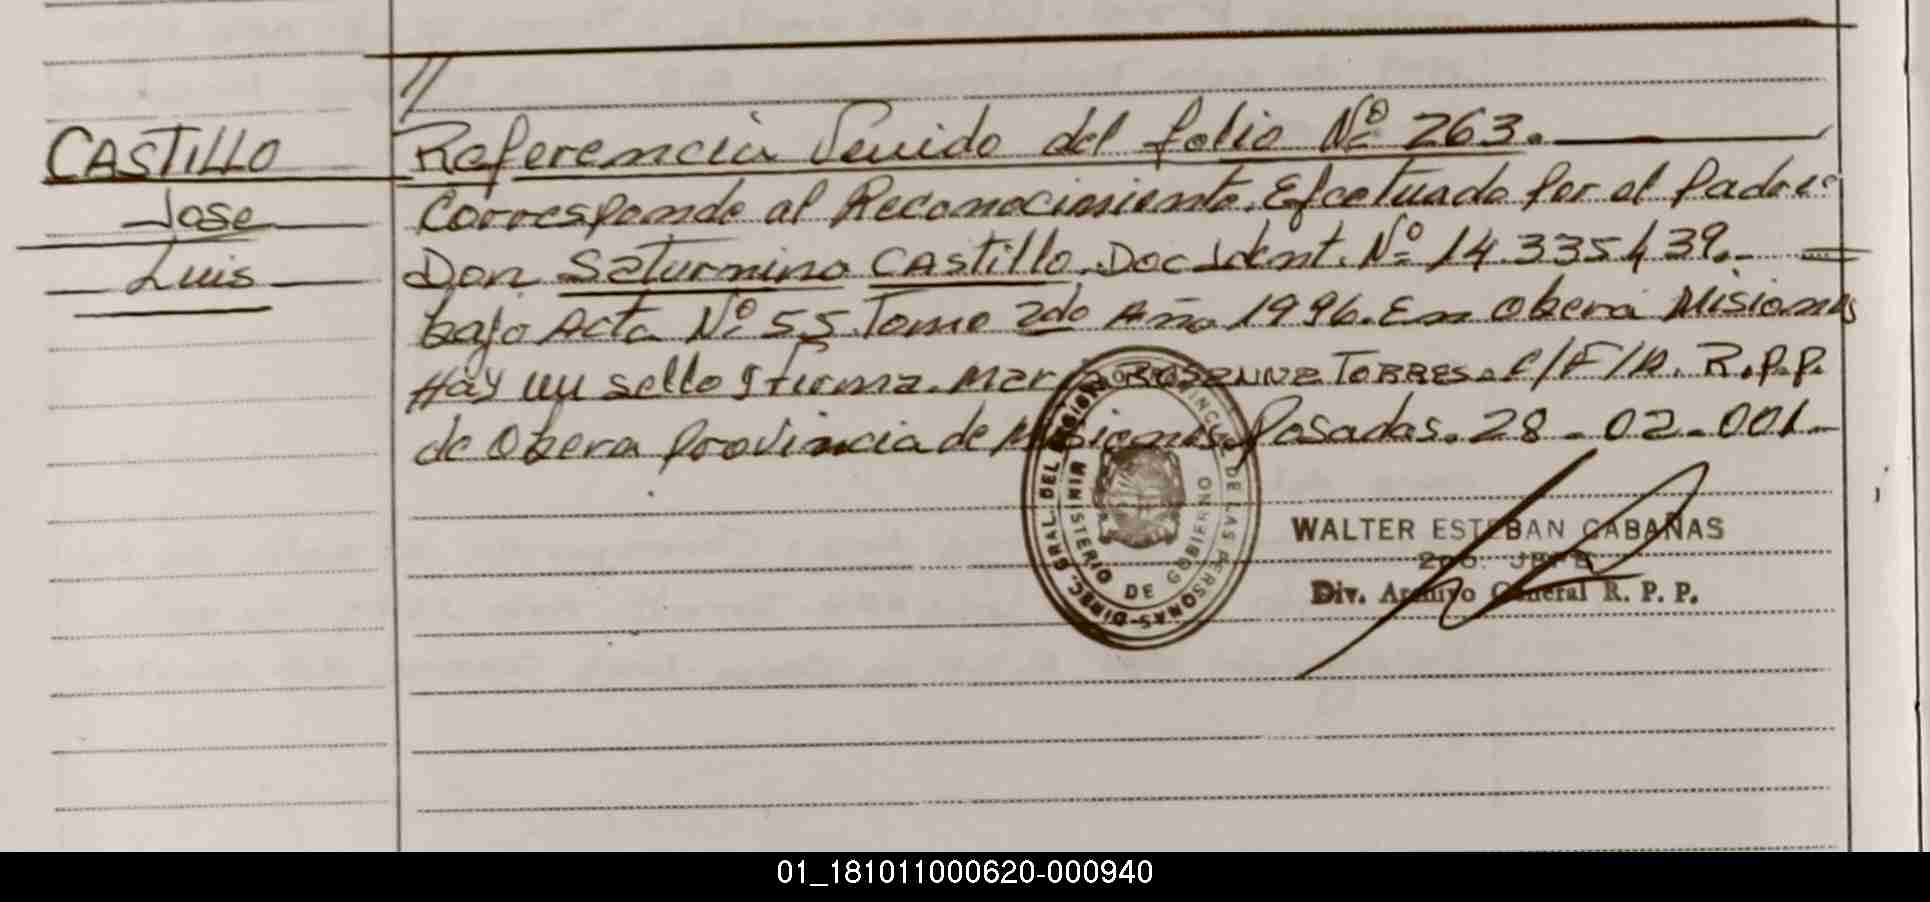 //
CASTILLO Referencia Venido del folio Nº 263.
Jose Corresponde al Reconocimiento. Efectuado por el padre
Luis Don Saturnino CAstillo. Doc Ident. Nº 14.335439.-
bajo Acta Nº 55. Tomo 2do Año 1996. En Obera Misiones
Hay un sello y firma. Mar ROSANNE TORRES. C/F/A. R.P.P.
de Obera provincia de Misiones. Posadas. 28-02-001-
DIREC. GRAL. DEL REGISTRO PROVINCIAL DE LAS PERSONAS
MINISTERIO DE GOBIERNO
WALTER ESTEBAN CABAÑAS
2DO. JEFE
Div. Archivo General R. P. P.
01_181011000620-000940